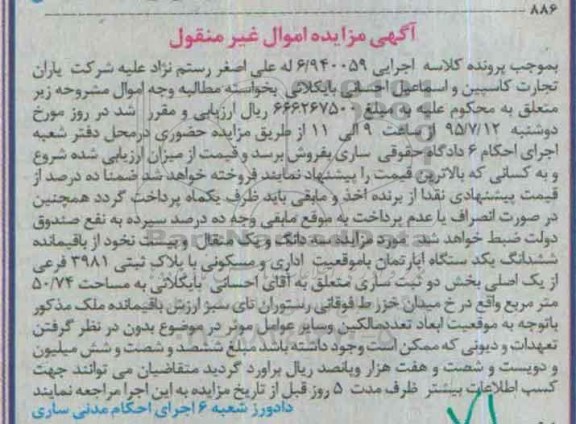 ۸۸۶
آگهی مزایده اموال غیر منقول
بموجب پرونده کلاسه اجرایی ۶/۹۴۰۰۵۹ له علی اصغر رستم نژاد علیه شرکت یاران
تجارت کاسپین و اسماعیل احسانی بایکلائی بخواسته مطالبه وجه اموال مشروحه زیر
متعلق به محکوم علیه به مبلغ ۶۶۶۲۶۷۵۰۰ ریال ارزیابی و مقرر شد در روز مورخ
دوشنبه ۹۵/۷/۱۲ از ساعت ۹ الی ۱۱ از طریق مزایده حضوری درمحل دفتر شعبه
اجرای احکام ۶ دادگاه حقوقی ساری بفروش برسد و قیمت از میزان ارزیابی شده شروع
و به کسانی که بالاترین قیمت را پیشنهاد نمایند فروخته خواهد شد ضمنا ده درصد از
قیمت پیشنهادی نقدا از برنده اخذ و مابقی باید ظرف یکماه پرداخت گردد همچنین
در صورت انصراف یا عدم پرداخت به موقع مابقی وجه ده درصد سپرده به نفع صندوق
دولت ضبط خواهد شد. مورد مزایده سه دانگ و یک مثقال و بیست نخود از باقیمانده
ششدانگ یکد ستگاه آپارتمان باموقعیت اداری و مسکونی با پلاک ثبتی ۳۹۸۱ فرعی
از یک اصلی بخش دو ثبت ساری متعلق به آقای احسانی بایکلائی به مساحت ۵۰/۷۴
متر مربع واقع در خ میدان خزر ط فوقانی رستوران تای سیز ارزش باقیمانده ملک مذکور
باتوجه به موقعیت ابعاد تعددمالکین وسایر عوامل موثر در موضوع بدون در نظر گرفتن
تعهدات و دیونی که ممکن است وجود داشته باشد مبلغ ششصد و شصت و شش میلیون
و دویست و شصت و هفت هزار وپانصد ریال براورد گردید متقاضیان می توانند جهت
کسب اطلاعات بیشتر ظرف مدت ۵ روز قبل از تاریخ مزایده به این اجرا مراجعه نمایند
دادورز شعبه ۶ اجرای احکام مدنی ساری